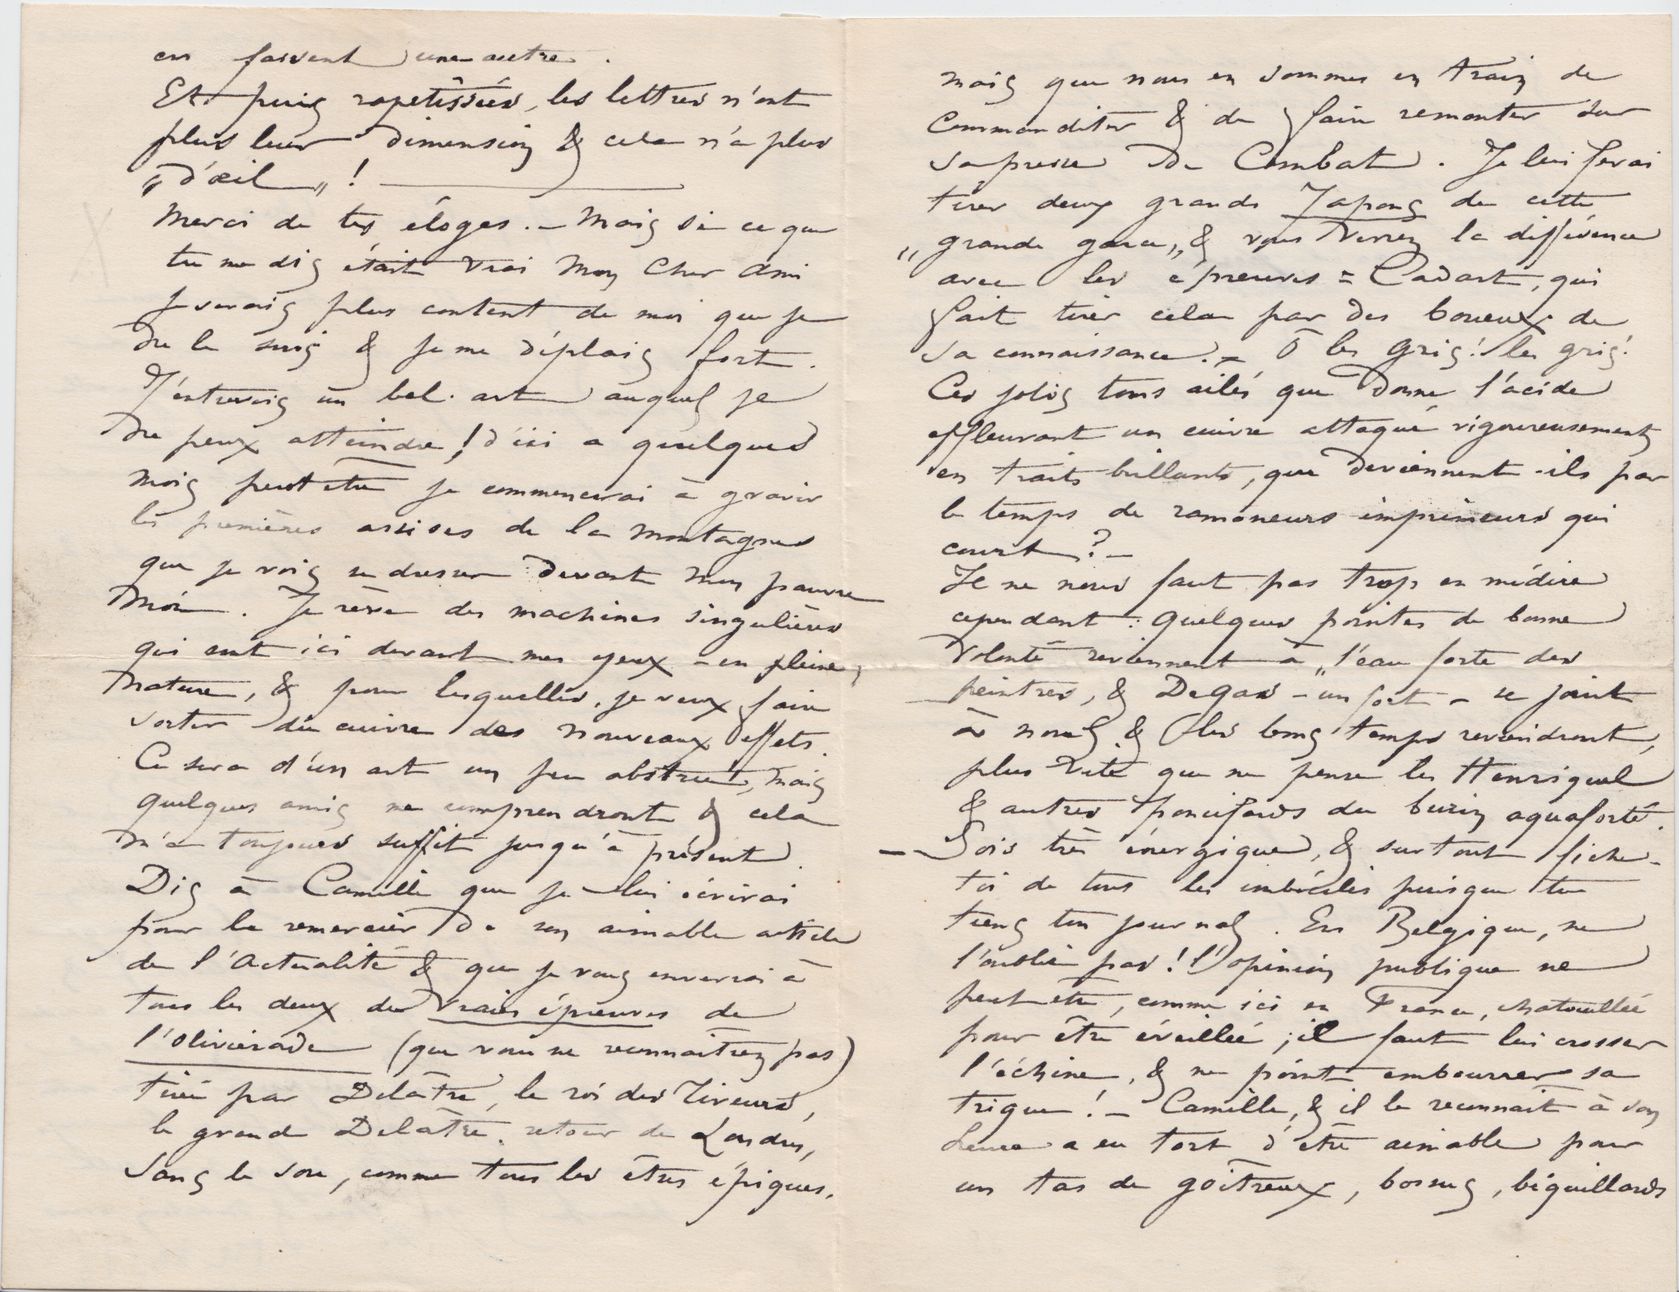 en faisant une autre.
Et puis rapetissées, les lettres n'ont
plus leur dimension & cela n'a plus
"d'œil" !
Merci de tes éloges. – Mais si ce que
tu me dis était vrai mon cher ami
je serais plus content de moi que je
ne le suis & je me déplais fort.
J'entrevois un bel art auquel je
ne peux atteindre ! d'ici a quelques
mois peut être je commencerai à gravir
les premières assises de la montagne
que je vois se dresser devant mon pauvre
moi. Je rêve des machines singulières
qui sont ici devant mes yeux – en pleine
nature, & pour lesquelles je veux faire
sortir du cuivre des nouveaux effets.
Ce sera d'un art un peu abstrait, mais
quelques amis me comprendront & cela
m'a toujours suffit jusqu'à présent.
Dis à Camille que je lui écrirai
pour le remercier de son aimable article
de l'Actualité & que je vous enverrai à
tous les deux des vraies épreuves de
l'olivierade (que vous ne reconnaîtrez pas)
tiré par Delâtre, le roi des Tireurs,
le grand Delâtre. retour de Londres,
sans le sou, comme tous les êtres épiques,
mais que nous en sommes en train de
commanditer & de faire remonter sur
sa presse de Combat. Je lui ferai
tirer deux grands Japons de cette
"grande garce" & vous verrez la différence
avec les épreuves = Cadart, qui
fait tirer cela par des boueux de
sa connaissance. – Ô les gris ! les gris !
Ces jolis tons ailés que donne l'acide
effleurant un cuivre attaqué vigoureusement
en traits brillants, que deviennent-ils par
le temps de ramoneurs imprimeurs qui
court ? –
Il ne nous faut pas trop en médire
cependant : quelques pointes de bonne
volonté reviennent à "l'eau forte des
peintres, & Degas – "un fort – se joint
à nous & les bons temps reviendront,
plus vite que ne pense les Henriquel
& autres poncifards du burin aquaforté.
– Sois très énergique, & surtout fiche-
toi de tous les imbéciles puisque tu
tiens ton journal. En Belgique, ne
l'oublie pas ! l'opinion publique ne
peut être, comme ici en France, chatouillée
pour être éveillée ; il faut lui crosser
l'échine, & ne point embourrer sa
trique ! – Camille, & il le reconnait à son
heure a eu tort d'être aimable pour
un tas de goîtreux, bossus, béquillards